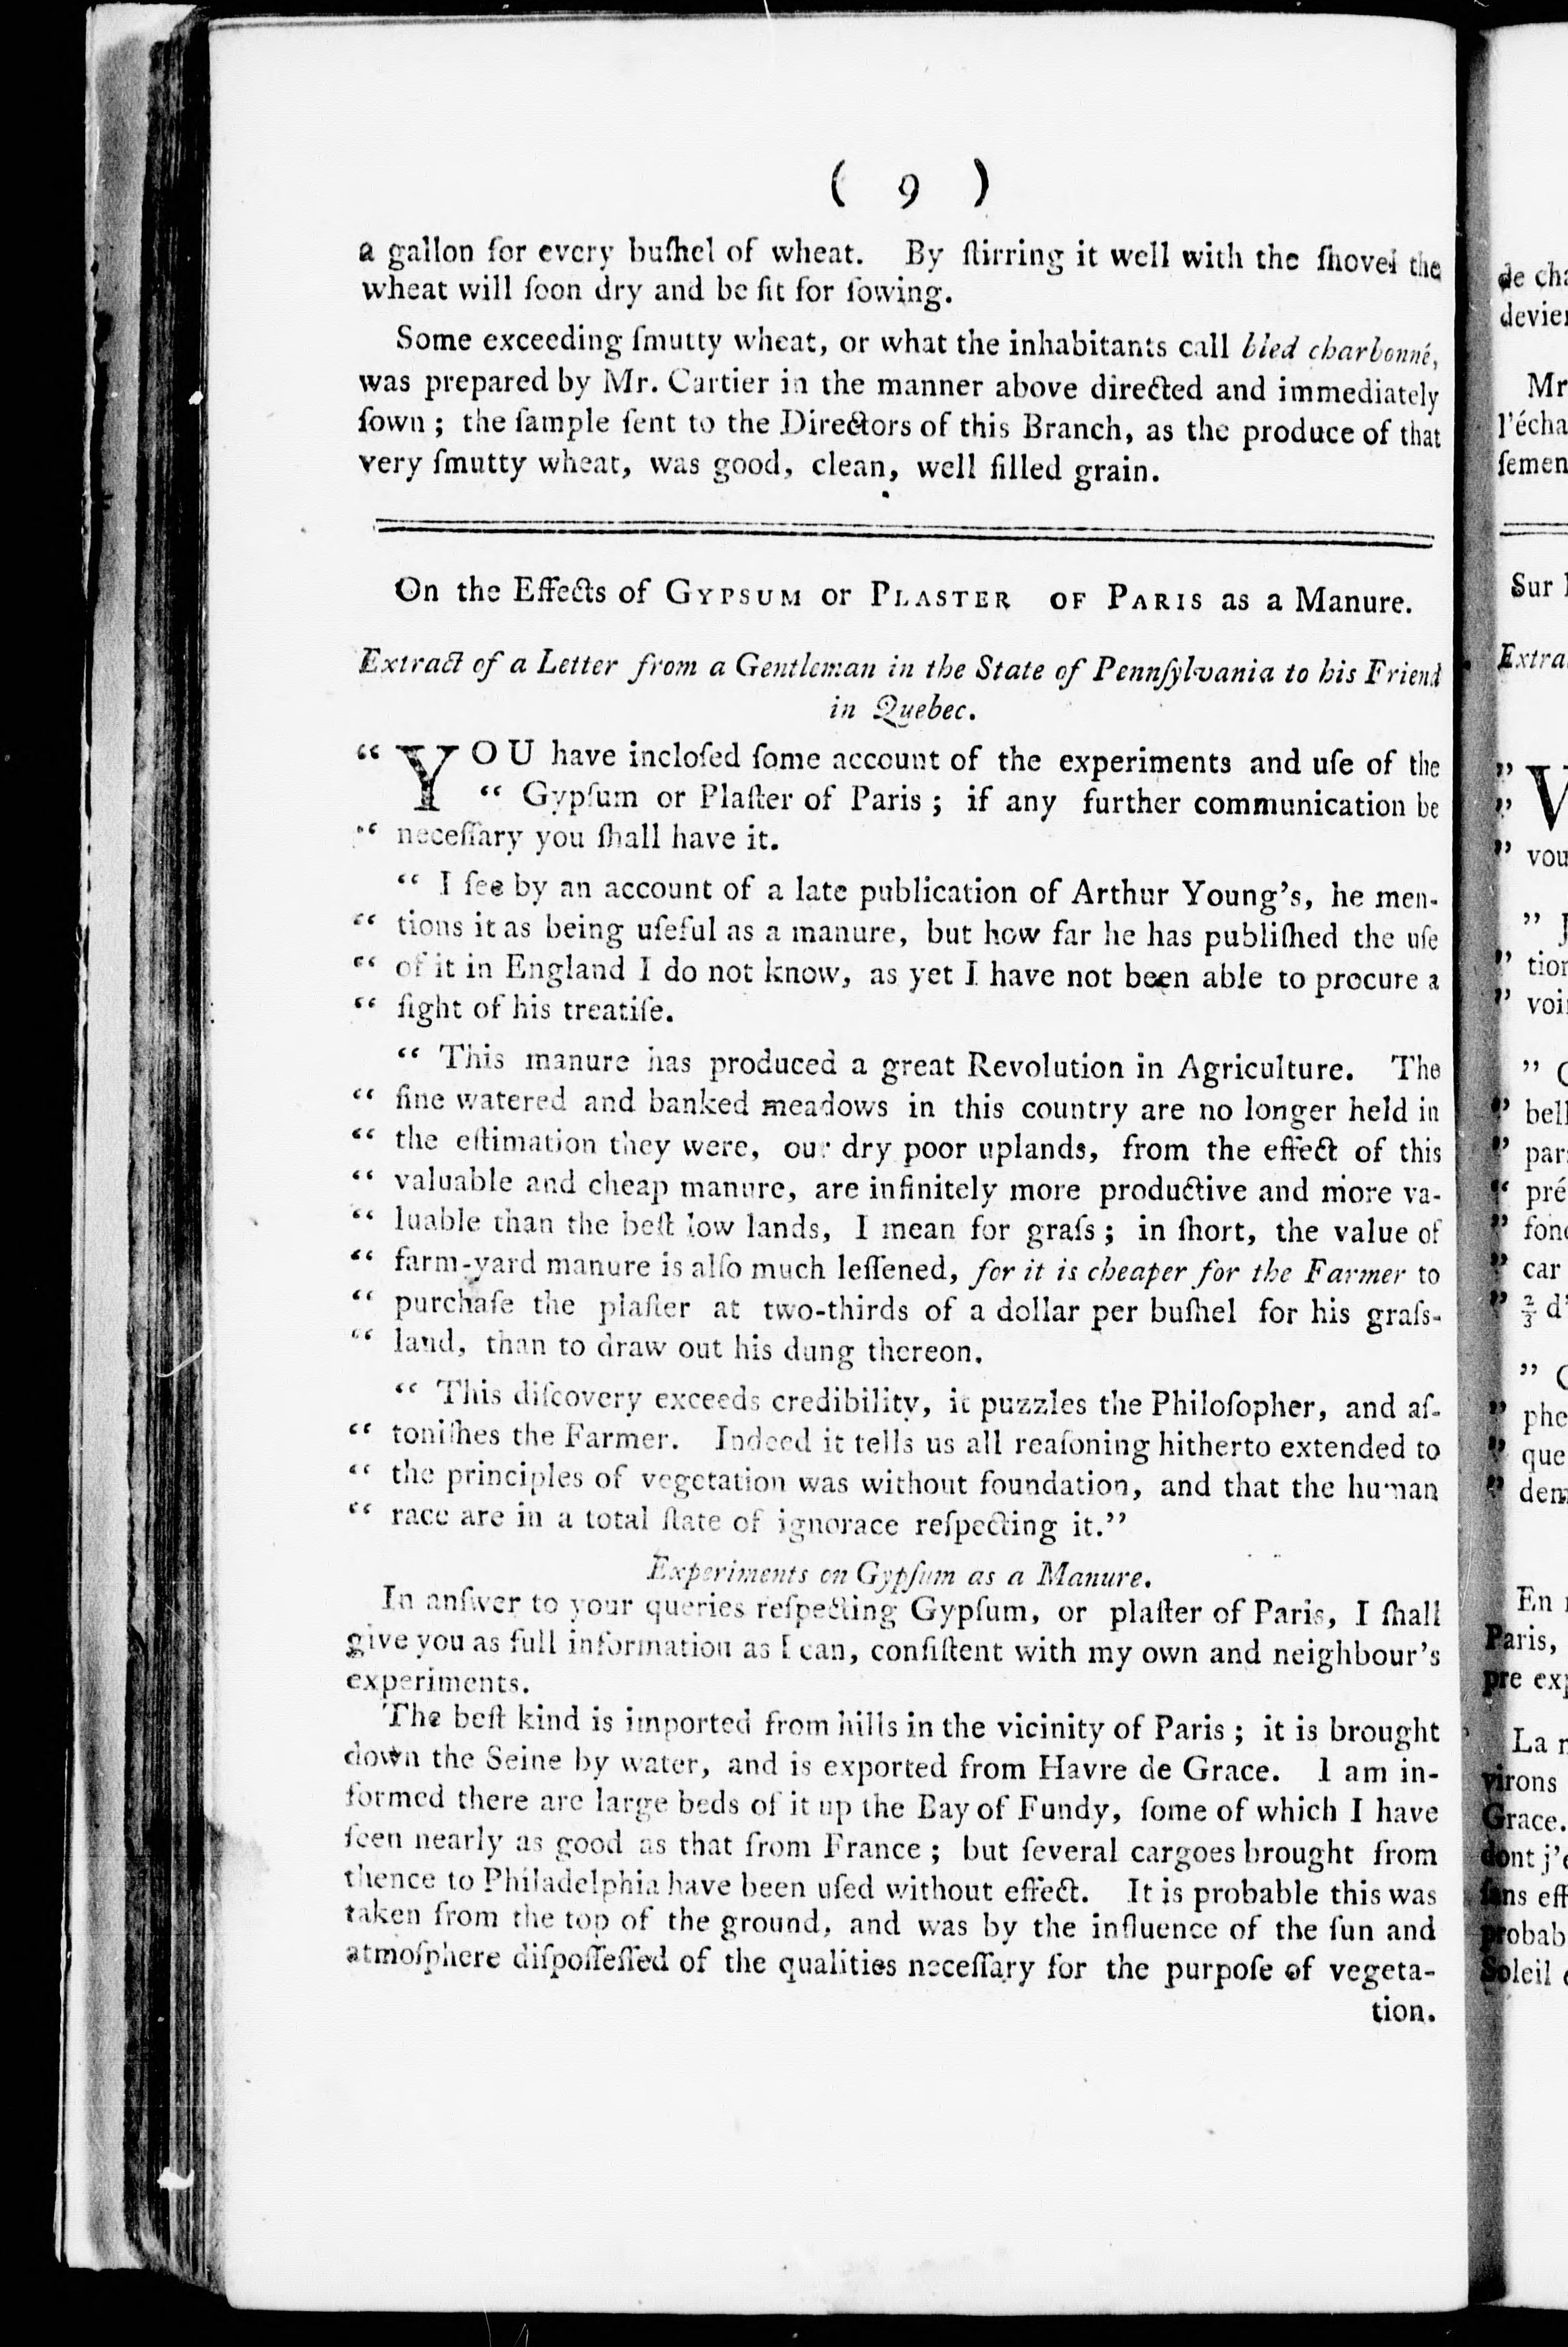 ( 9 )
a gallon for every buſhel of wheat. By ſtirring it well with the ſhovel the
wheat will ſoon dry and be fit for ſowing.
Some exceeding ſmutty wheat, or what the inhabitants call bled charbonné,
was prepared by Mr. Cartier in the manner above directed and immediately
ſown ; the ſample ſent to the Directors of this Branch, as the produce of that
very ſmutty wheat, was good, clean, well filled grain.
On the Effects of GYPSUM or PLASTER OF PARIS as a Manure.
Extract of a Letter from a Gentleman in the State of Pennſylvania to his Friend
in Quebec.
“ YOU have incloſed ſome account of the experiments and uſe of the
“ Gypſum or Plaſter of Paris ; if any further communication be
“ neceſſary you ſhall have it.
“ I ſee by an account of a late publication of Arthur Young’s, he men-
“ tions it as being uſeful as a manure, but how far he has publiſhed the uſe
“ of it in England I do not know, as yet I have not been able to procure a
“ ſight of his treatiſe.
“ This manure has produced a great Revolution in Agriculture. The
“ fine watered and banked meadows in this country are no longer held in
“ the eſtimation they were, our dry poor uplands, from the effect of this
“ valuable and cheap manure, are infinitely more productive and more va-
“ luable than the beſt low lands, I mean for graſs ; in ſhort, the value of
“ farm-yard manure is alſo much leſſened, for it is cheaper for the Farmer to
“ purchaſe the plaſter at two-thirds of a dollar per buſhel for his graſs-
“ land, than to draw out his dung thereon.
“ This diſcovery exceeds credibility, it puzzles the Philoſopher, and aſ-
“ toniſhes the Farmer. Indeed it tells us all reaſoning hitherto extended to
“ the principles of vegetation was without foundation, and that the human
“ race are in a total ſtate of ignorace reſpecting it.”
Experiments on Gypſum as a Manure.
In anſwer to your queries reſpecting Gypſum, or plaſter of Paris, I ſhall
give you as full information as I can, conſiſtent with my own and neighbour’s
experiments.
The beſt kind is imported from hills in the vicinity of Paris ; it is brought
down the Seine by water, and is exported from Havre de Grace. I am in-
formed there are large beds of it up the Bay of Fundy, ſome of which I have
ſeen nearly as good as that from France ; but ſeveral cargoes brought from
thence to Philadelphia have been uſed without effect. It is probable this was
taken from the top of the ground, and was by the influence of the ſun and
atmoſphere diſpoſſeſſed of the qualities neceſſary for the purpoſe of vegeta-
tion.
de cha
devie
Mr
l’écha
ſemen
Sur
Extra
” V
”
” vou
” J
” tion
” voi
”
” bell
” par
“ pré
” fon
” car
” ⅔ d’
”
” phe
” que
” dem
En
Paris,
pre ex
La
virons
Grace.
dont j’
ſans eff
probab
Soleil